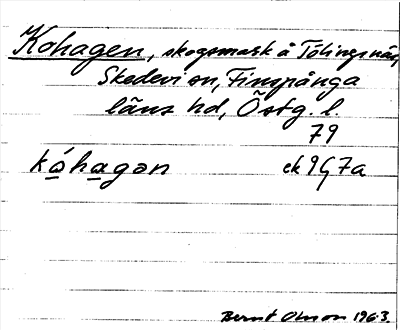 Kohagen, skogsmark å Tölingsnäs,
Skedevi sn, Finspånga
läns hd, Östg. l.
79
kóhagən ek 9G7a
Bernt Olsson 1963.